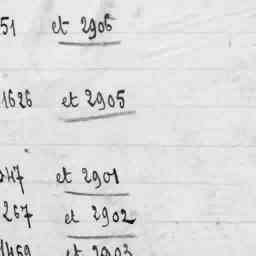 51 et 2906
1626 et 2905
247 et 2901
267 et 2902
1459 et 2903